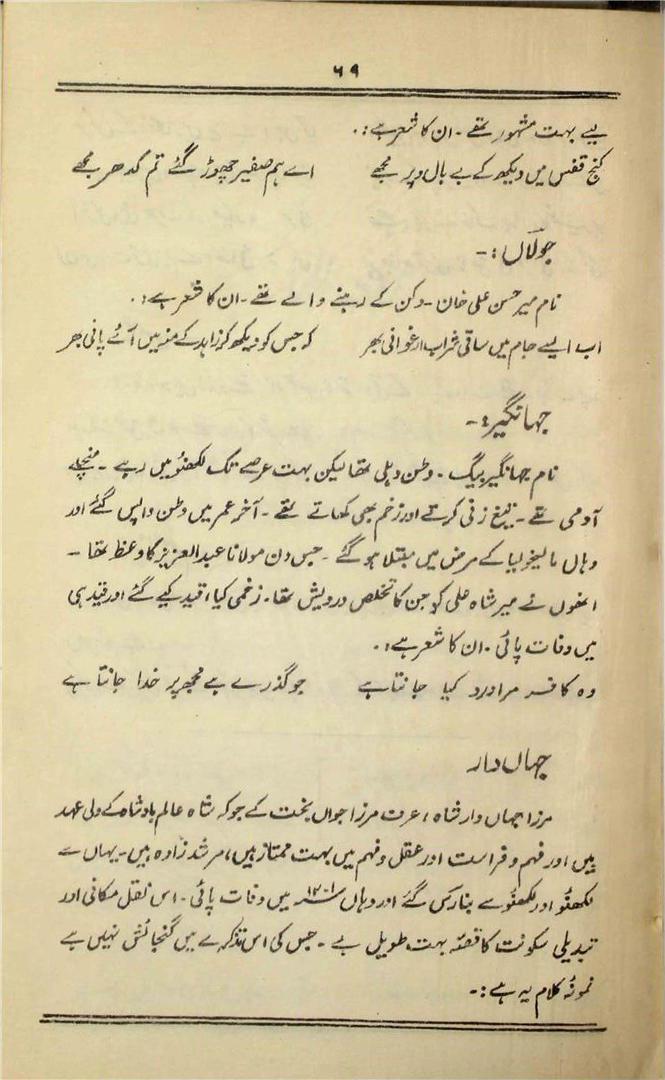 ۶۹
لیے بہت مشہور تھے ۔ ان کا شعر ہے :۔
کنج قفس میں دیکھ کے بے بال و پر مجھے اے ہم صفیر چھوڑ گئے تم کدھر مجھے
جولاں :۔
نام میر حسن علی خان ۔ دکن کے رہنے والے تھے ۔ ان کا شعر ہے :۔
اب ایسے جام میں ساقی شراب ارغوانی بھر کہ جس کو دیکھ کر زاہد کے منہ میں آئے پانی بھر
جہانگیر :۔
نام جہانگیر بیگ ۔ وطن دہلی تھا لیکن بہت عرصے تک لکھنؤ میں رہے ۔ منچلے
آدمی تھے ۔ تیغ زنی کرتے اور زخم بھی کھاتے تھے ۔ آخر عمر میں وطن واپس گئے اور
وہاں مالیخولیا کے مرض میں مبتلا ہو گئے ۔ جس دن مولانا عبدالعزیز کا وعظ تھا ۔
انھوں نے میر شاہ علی کو جن کا تخلص درویش تھا ۔ زخمی کیا ، قید کیے گئے اور قید ہی
میں وفات پائی ۔ ان کا شعر ہے :۔
وہ کافر مرا درد کیا جانتا ہے جو گذرے ہے مجھ پر خدا جانتا ہے
جہاں دار
مرزا جہاں دار شاہ ، عرف مرزا جواں بخت کے جو کہ شاہ عالم بادشاہ کے ولی عہد
ہیں اور فہم و فراست اور عقل و فہم میں بہت ممتاز ہیں ، مرشد زادہ ہیں ۔ یہاں سے
لکھنؤ اور لکھنؤ سے بنارس گئے اور وہاں ۱۲۰۱ھ میں وفات پائی ۔ اس نقل مکانی اور
تبدیلی سکونت کا قصہ بہت طویل ہے ۔ جس کی اس تذکرے میں گنجائش نہیں ہے
نمونۂ کلام یہ ہے :۔